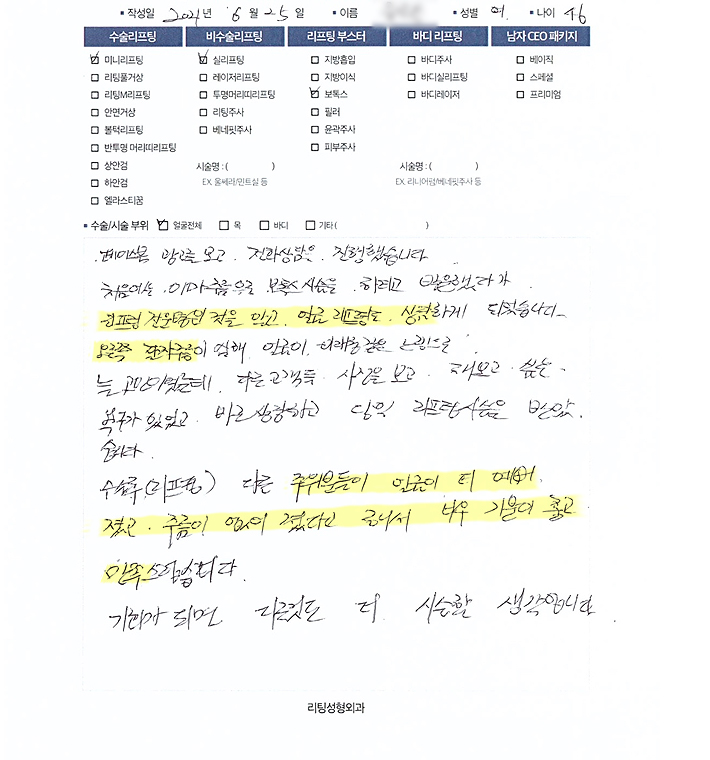 ▪ 작성일 2021년 6월 25일 ▪ 이름 ▪ 성별 여. ▪ 나이 46
수술리프팅 비수술리프팅 리프팅 부스터 바디 리프팅 남자 CEO 패키지
미니리프팅 실리프팅 지방흡입 바디주사 베이직
리팅풀거상 레이저리프팅 지방이식 바디실리프팅 스페셜
리팅M리프팅 투명머리띠리프팅 보톡스 바디레이저 프리미엄
안면거상 리팅주사 필러
볼턱리프팅 베네핏주사 윤곽주사
반투명 머리띠리프팅 피부주사
상안검 시술명 : ( ) 시술명 : ( )
하안검 EX. 울쎄라/민트실 등 EX. 리니어펌/베네핏주사 등
엘라스티꿈
▪ 수술/시술 부위 얼굴전체 목 바디 기타 ( )
페이스북 광고를 보고. 전화상담을. 진행했습니다
처음에는 이마주름으로 보톡스 시술을 하려고 마음먹었다가
리프팅 전문병원 것을 알고, 얼굴 리프팅도 상담하게 되었습니다.
팔자주름이 심해 얼굴이
고민이었는데, 다른 고객들 사진을 보고. 해보고 싶은
욕구가 있었고. 바로 상담하고 당일 리프팅시술을 받았
습니다.
수술후(리프팅) 다른 주위분들이 얼굴이 더 예뻐
졌고. 주름이 없어 졌다고 하니까 너무 기분이 좋고
만족스럽습니다.
기회가 되면 다른것도 더 시술할 생각입니다
리팅성형외과